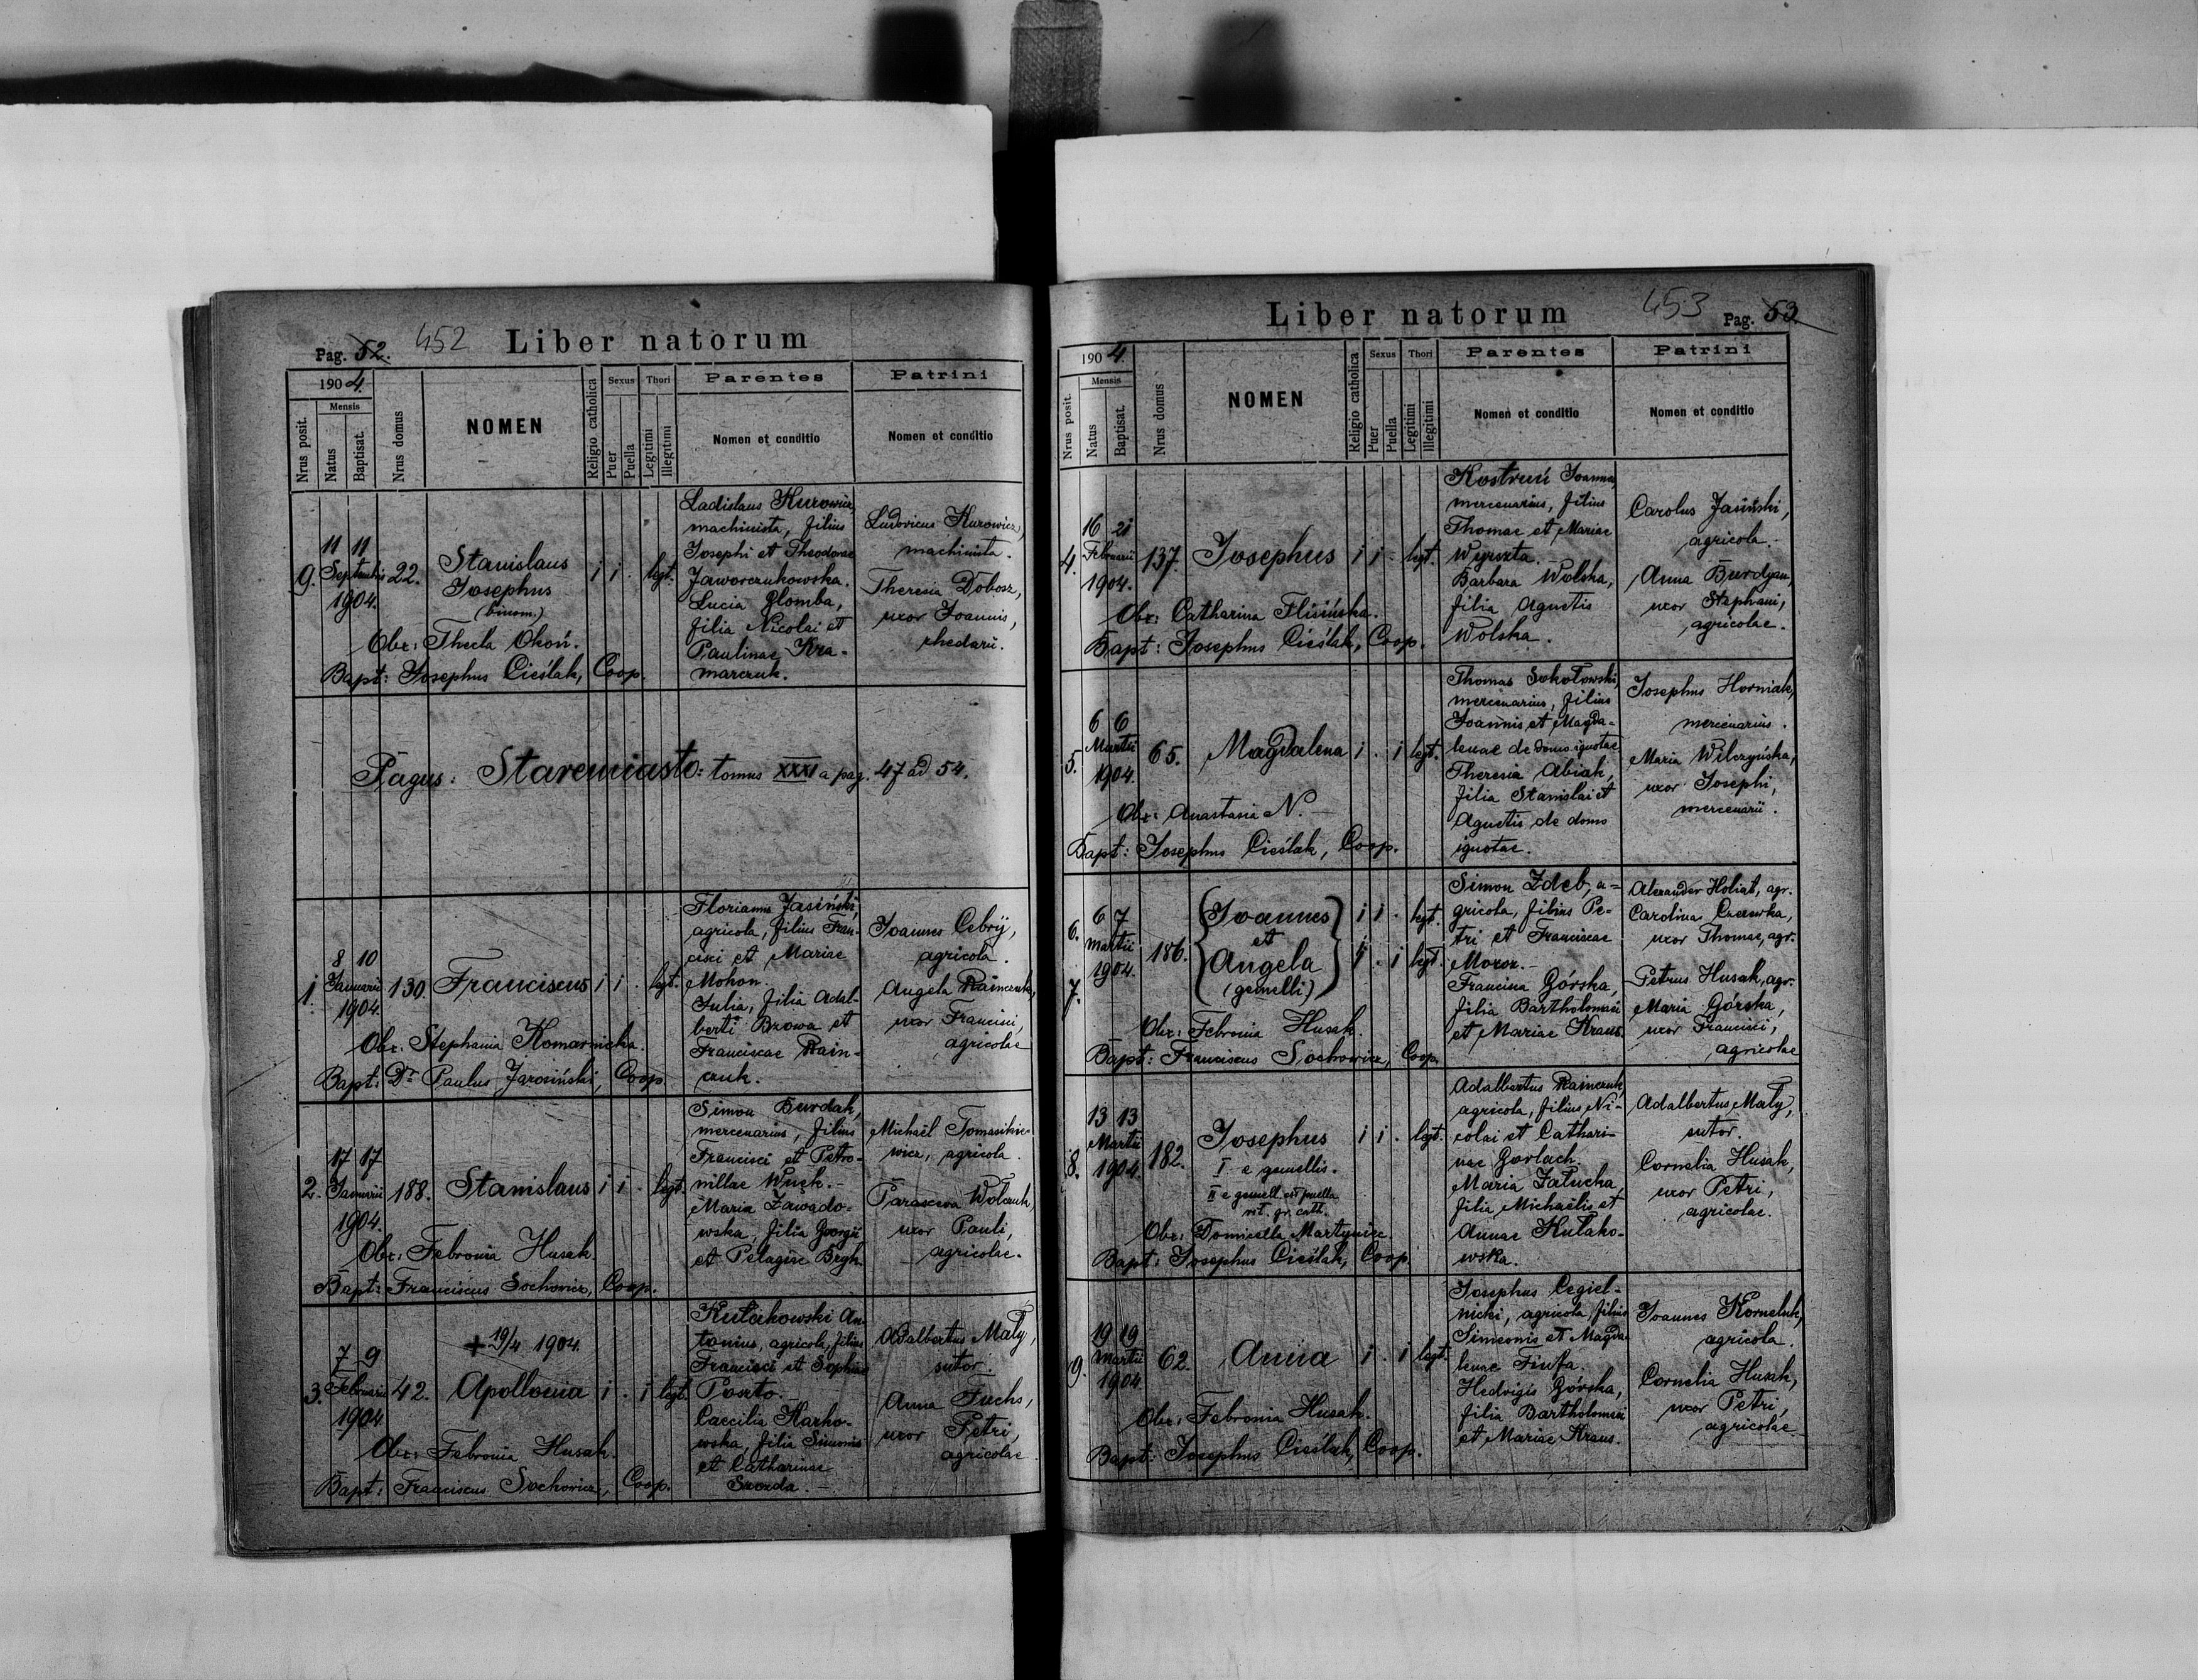 Pag. 52. 452 Liber natorum
1904.
Nrus posit.
Mensis
Natus
Baptisat.
Nrus domus
NOMEN
Religio catholica
Sexus
Puer
Puella
Thori
Legitimi
Illegitimi
Parentes
Nomen et conditio
Patrini
Nomen et conditio
9.
11 11
Septembris
1904.
22.
Stanislaus
Josephus
(binom.)
i i . legt.
Ladislaus Kurowicz,
machinista, filius
Josephi et Theodorae
Jaworczukowska.
Lucia Glomba,
filia Nicolai et
Paulinae Kra-
marczuk.
Ludovicus Kurowicz,
machinista.
Theresia Dobosz,
uxor Joannis,
rhedarii.
Obr: Thecla Okoń.
Bapt: Josephus Cieślak, Coop.
Pagus: Staremiasto: tomus XXXI a pag. 47 ad 54.
1.
8 10
Januarii
1904.
130.
Franciscus
i i . legt.
Florianus Jasiński,
agricola, filius Fran-
cisci et Mariae
Mohon.
Julia, filia Adal-
berti Brzowa et
Franciscae Rain-
czuk.
Joannes Cebryj,
agricola.
Angela Rainczuk,
uxor Francisci,
agricolae
Obr. Stephania Komarnicka.
Bapt: Dr Paulus Jarosiński, Coop.
2.
17 17
Januarii
1904.
188.
Stanislaus
i i . legt.
Simon Burdak,
mercenarius, filius
Francisci et Petro-
nillae Wuck.
Maria Zawado-
wska, filia Georgii
et Pelagiae Bryk.
Michaël Tomasikie-
wicz, agricola.
Parascewa Wolczuk,
uxor Pauli,
agricolae.
Obr: Febronia Husak.
Bapt: Franciscus Sochowicz, Coop.
3.
7 9
Februarii
1904
42.
+ 19/4 1904.
Apollonia
i . i legt.
Kułakowski An-
tonius, agricola, filius
Francisci et Sophiae
Poszto.
Caecilia Karko-
wska, filia Simonis
et Catharinae
Szozda.
Adalbertus Mały,
sutor.
Anna Fuchs,
uxor Petri,
agricolae.
Obr: Febronia Husak.
Bapt: Franciscus Sochowicz, Coop.
Liber natorum 453 Pag. 53.
1904
Nrus posit.
Mensis
Natus
Baptisat.
Nrus domus
NOMEN
Religio catholica
Sexus
Puer
Puella
Thori
Legitimi
Illegitimi
Parentes
Nomen et conditio
Patrini
Nomen et conditio
4.
16 21
Februarii
1904.
137.
Josephus
i i . legt.
Kostruń Joannes,
mercenarius, filius
Thomae et Mariae
Wyrszta.
Barbara Wolska,
filia Agnetis
Wolska.
Carolus Jasiński,
agricola.
Anna Burdyan,
uxor Stephani,
agricolae.
Obr: Catharina Flisińska.
Bapt: Josephus Cieślak, Coop.
5.
6 6
Martii
1904.
65.
Magdalena
i . i legt.
Thomas Sokołowski,
mercenarius, filius
Joannis et Magda-
lenae de domo ignotae
Theresia Abiak,
filia Stanislai et
Agnetis de domo
ignotae.
Josephus Horniak,
mercenarius.
Maria Wilczyńska,
uxor Josephi,
mercenarii.
Obr: Anastasia N.
Bapt: Josephus Cieślak, Coop.
6.
7.
6 7
Martii
1904.
186.
Joannes
et
Angela
(gemelli)
i i . legt.
i . i legt.
Simon Zdeb, a-
gricola, filius Pe-
tri et Franciscae
Moroz.
Francisca Górska,
filia Bartholomaei
et Mariae Kraus.
Alexander Holiat, agr.
Carolina Czerewka,
uxor Thomae, agr.
Petrus Husak, agr.
Maria Górska,
uxor Francisci,
agricolae
Obr: Febronia Husak.
Bapt: Franciscus Sochowicz, Coop.
8.
13 13
Martii
1904.
182.
Josephus
I e gemellis.
II e gemell. est puella
rit. gr. cath.
i i . legt.
Adalbertus Rainczuk,
agricola, filius Ni-
colai et Cathari-
nae Gorlach.
Maria Załucka,
filia Michaëlis et
Annae Kułako-
wska.
Adalbertus Mały,
sutor.
Cornelia Husak,
uxor Petri,
agricolae.
Obr: Domicella Martyniec
Bapt: Josephus Cieślak, Coop.
9.
19 19
Martii
1904
62.
Anna
i . i legt.
Josephus Cegiel-
nicki, agricola, filius
Simeonis et Magda-
lenae Finfa.
Hedvigis Górska,
filia Bartholomaei
et Mariae Kraus.
Joannes Korneluk,
agricola.
Cornelia Husak,
uxor Petri,
agricolae.
Obr: Febronia Husak.
Bapt: Josephus Cieślak, Coop.